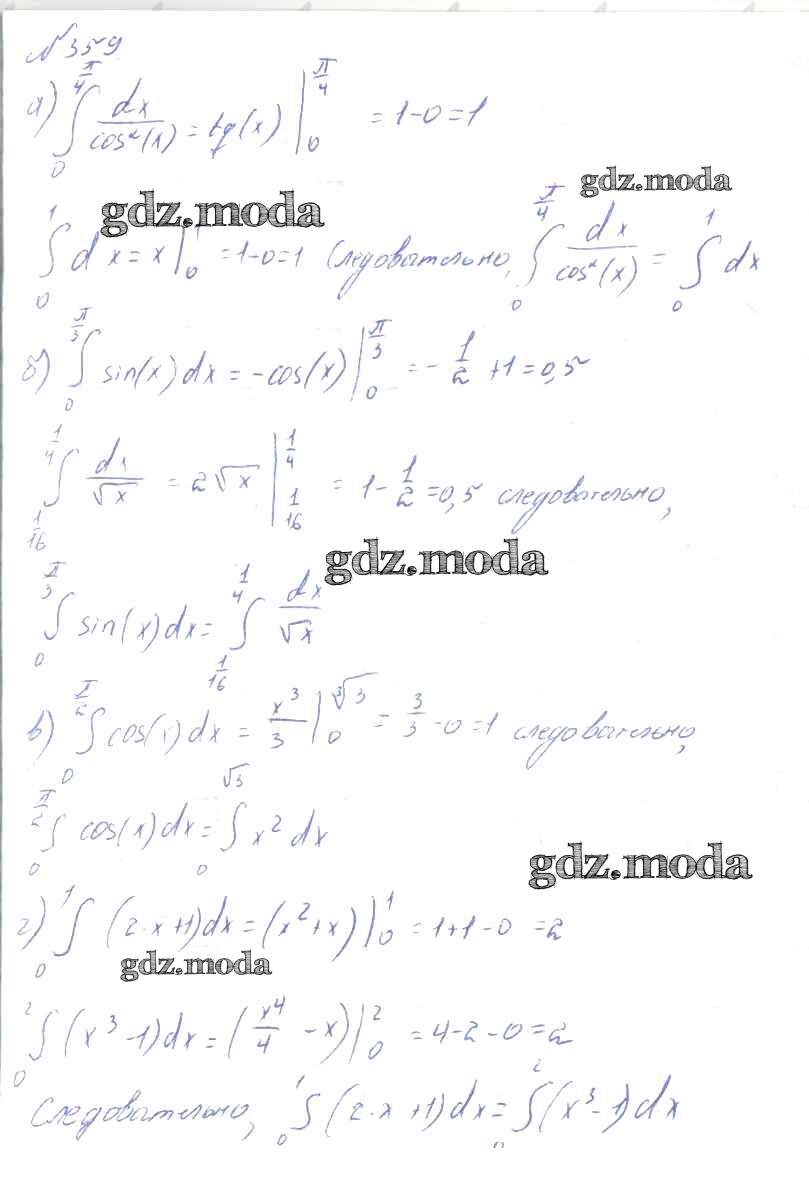 № 359
а) ∫₀^{π/4} dx/cos²(x) = tg(x) |₀^{π/4} = 1-0=1
gdz.moda
gdz.moda
∫₀¹ dx = x |₀¹ = 1-0=1 Следовательно, ∫₀^{π/4} dx/cos²(x) = ∫₀¹ dx
б) ∫₀^{π/3} sin(x) dx = -cos(x) |₀^{π/3} = -1/2 +1=0,5
∫_{1/16}^{1/4} dx/√x = 2√x |_{1/16}^{1/4} = 1-1/2=0,5 следовательно,
gdz.moda
∫₀^{π/3} sin(x)dx = ∫_{1/16}^{1/4} dx/√x
в) ∫₀^{π/2} cos(x) dx = x³/3 |₀^{∛3} = 3/3-0=1 следовательно,
∫₀^{π/2} cos(x) dx = ∫₀^{√3} x² dx
gdz.moda
г) ∫₀¹ (2·x+1)dx = (x²+x) |₀¹ = 1+1-0=2
gdz.moda
∫₀² (x³-1)dx = (x⁴/4 -x) |₀² = 4-2-0=2
Следовательно, ∫₀¹ (2·x+1)dx = ∫₀² (x³-1)dx